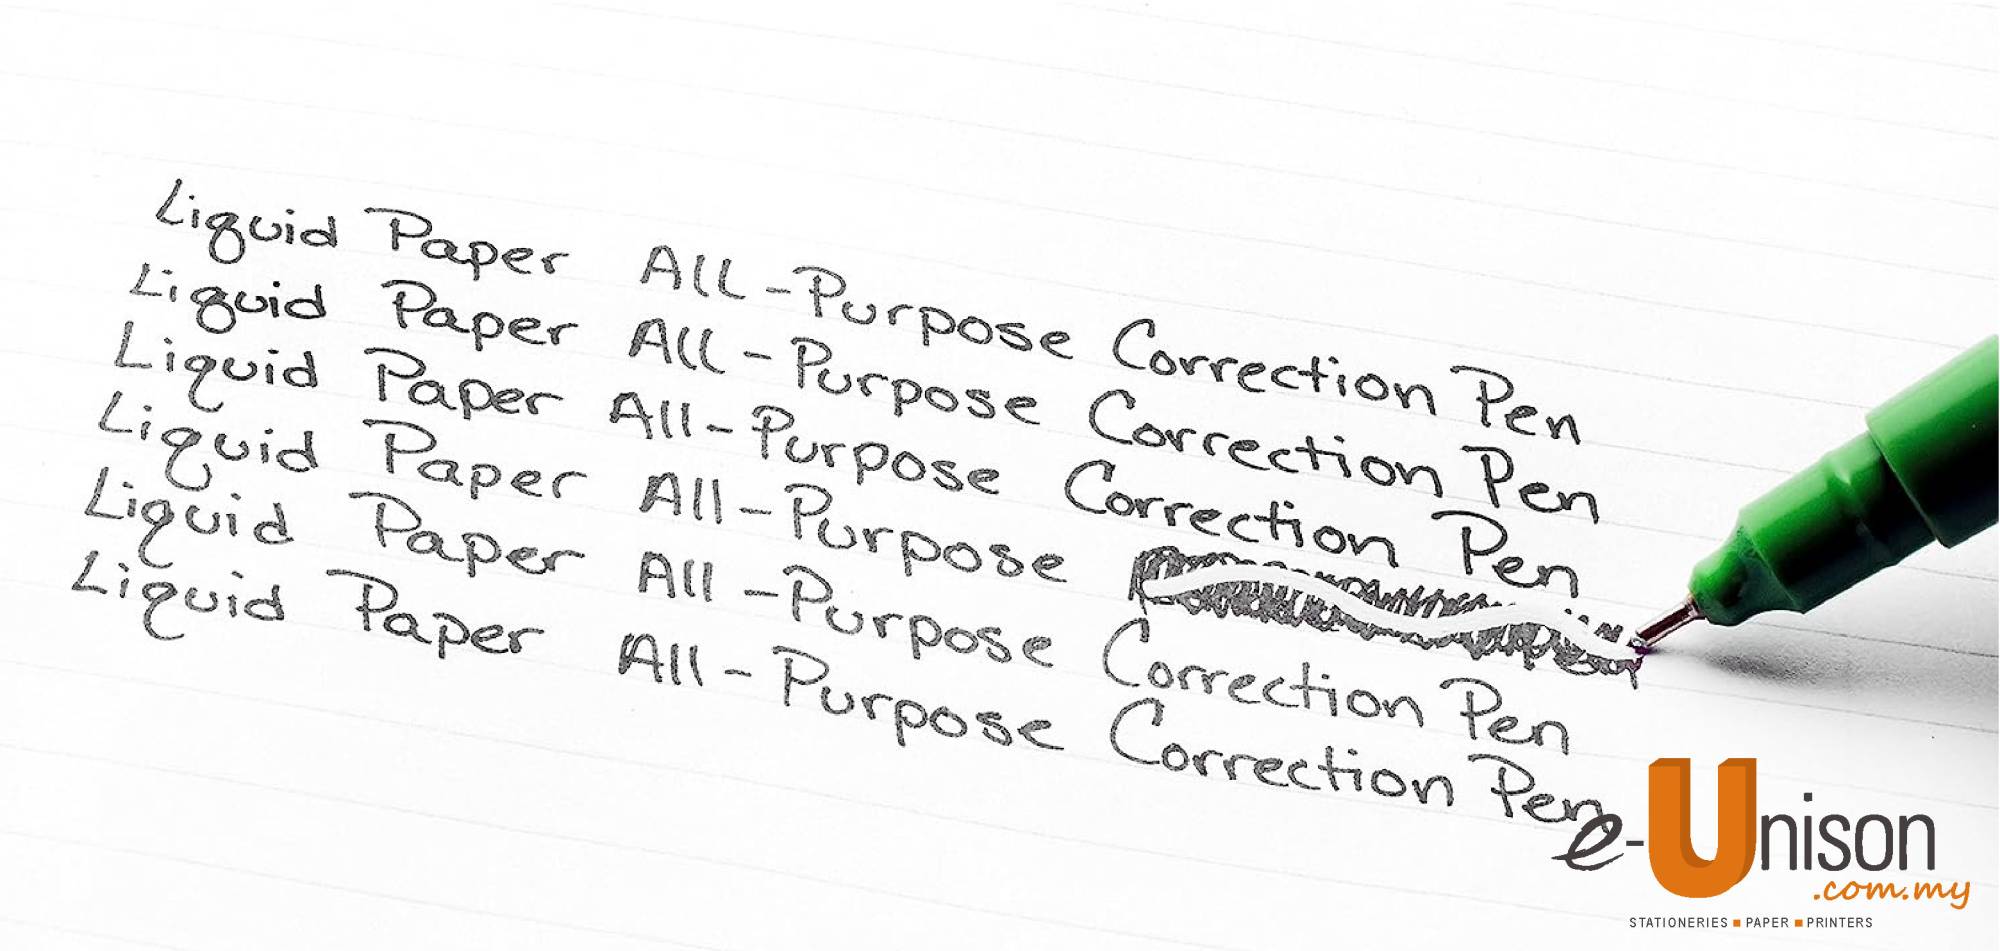 Liquid Paper All-Purpose Correction Pen
Liquid Paper All-Purpose Correction Pen
Liquid Paper All-Purpose Correction Pen
Liquid Paper All-Purpose
Liquid Paper All-Purpose Correction Pen
Liquid Paper All-Purpose Correction Pen
e-Unison
.com.my
STATIONERIES ▪ PAPER ▪ PRINTERS